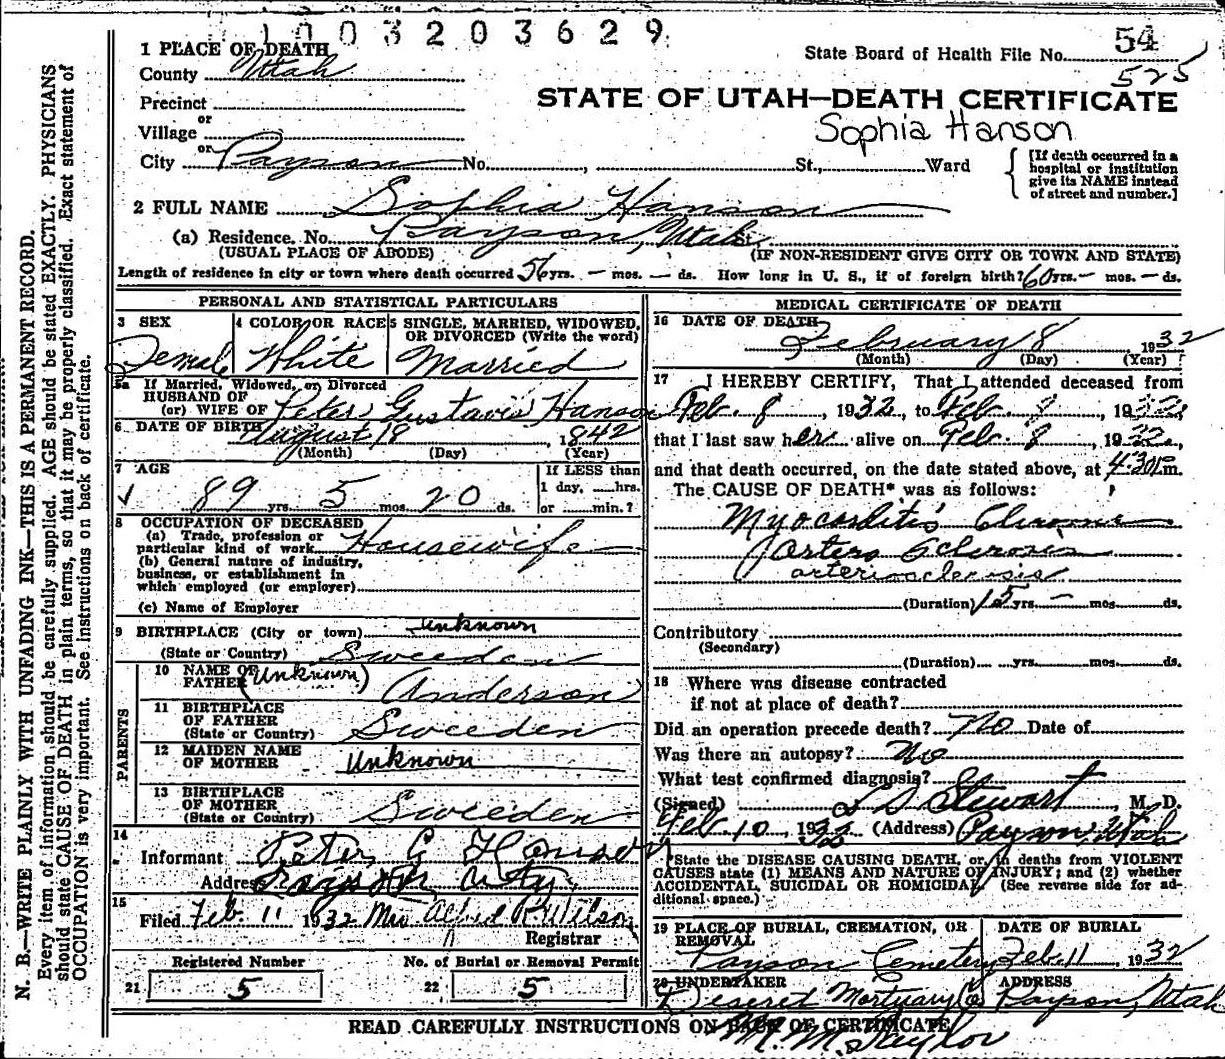 1003203629
State Board of Health File No. 54
525
1 PLACE OF DEATH
County Utah
Precinct
or
Village
or
City Payson No. , St., Ward
STATE OF UTAH—DEATH CERTIFICATE
Sophia Hanson
{ [If death occurred in a
hospital or institution
give its NAME instead
of street and number.]
2 FULL NAME Sophia Hanson
(a) Residence. No. Payson, Utah
(USUAL PLACE OF ABODE) (IF NON-RESIDENT GIVE CITY OR TOWN AND STATE)
Length of residence in city or town where death occurred 56 yrs. — mos. — ds. How long in U. S., if of foreign birth? 60 yrs. — mos. — ds.
PERSONAL AND STATISTICAL PARTICULARS
3 SEX
Female
4 COLOR OR RACE
White
5 SINGLE, MARRIED, WIDOWED,
OR DIVORCED (Write the word)
Married
5a If Married, Widowed, or Divorced
HUSBAND OF
(or) WIFE OF Peter Gustavis Hanson
6 DATE OF BIRTH August 18, 1842
(Month) (Day) (Year)
7 AGE
89 yrs. 5 mos. 20 ds.
If LESS than
1 day, ......hrs.
or ......min.?
8 OCCUPATION OF DECEASED
(a) Trade, profession or
particular kind of work Housewife
(b) General nature of industry,
business, or establishment in
which employed (or employer)
(c) Name of Employer
9 BIRTHPLACE (City or town) unknown
(State or Country) Sweeden
PARENTS
10 NAME OF
FATHER (Unknown) Anderson
11 BIRTHPLACE
OF FATHER
(State or Country) Sweeden
12 MAIDEN NAME
OF MOTHER Unknown
13 BIRTHPLACE
OF MOTHER
(State or Country) Sweeden
14
Informant Peter G Hanson
Address Payson City
15
Filed Feb. 11 1932 Mrs Alfred R. Wilson
Registrar
Registered Number
21 5
No. of Burial or Removal Permit
22 5
MEDICAL CERTIFICATE OF DEATH
16 DATE OF DEATH
February 8 1932
(Month) (Day) (Year)
17 I HEREBY CERTIFY, That I attended deceased from
Feb. 8, 1932, to Feb. 8, 1932,
that I last saw her alive on Feb. 8, 1932,
and that death occurred, on the date stated above, at 4:30 p.m.
The CAUSE OF DEATH* was as follows:
Myocarditis Chronic
Arterio Sclerosis
arteriosclerosis
(Duration) 15 yrs. — mos. ds.
Contributory
(Secondary)
(Duration) yrs. mos. ds.
18 Where was disease contracted
if not at place of death?
Did an operation precede death? No Date of
Was there an autopsy? No
What test confirmed diagnosis?
(Signed) L D Stewart, M. D.
Feb. 10, 1932 (Address) Payson, Utah
*State the DISEASE CAUSING DEATH, or, in deaths from VIOLENT
CAUSES state (1) MEANS AND NATURE OF INJURY; and (2) whether
ACCIDENTAL, SUICIDAL OR HOMICIDAL. (See reverse side for ad-
ditional space.)
19 PLACE OF BURIAL, CREMATION, OR
REMOVAL
Payson Cemetery
DATE OF BURIAL
Feb. 11, 1932
20 UNDERTAKER
Deseret Mortuary Co
M. M. Taylor
ADDRESS
Payson, Utah
READ CAREFULLY INSTRUCTIONS ON BACK OF CERTIFICATE
N. B.—WRITE PLAINLY WITH UNFADING INK—THIS IS A PERMANENT RECORD.
Every item of information should be carefully supplied. AGE should be stated EXACTLY. PHYSICIANS
should state CAUSE OF DEATH in plain terms, so that it may be properly classified. Exact statement of
OCCUPATION is very important. See instructions on back of certificate.